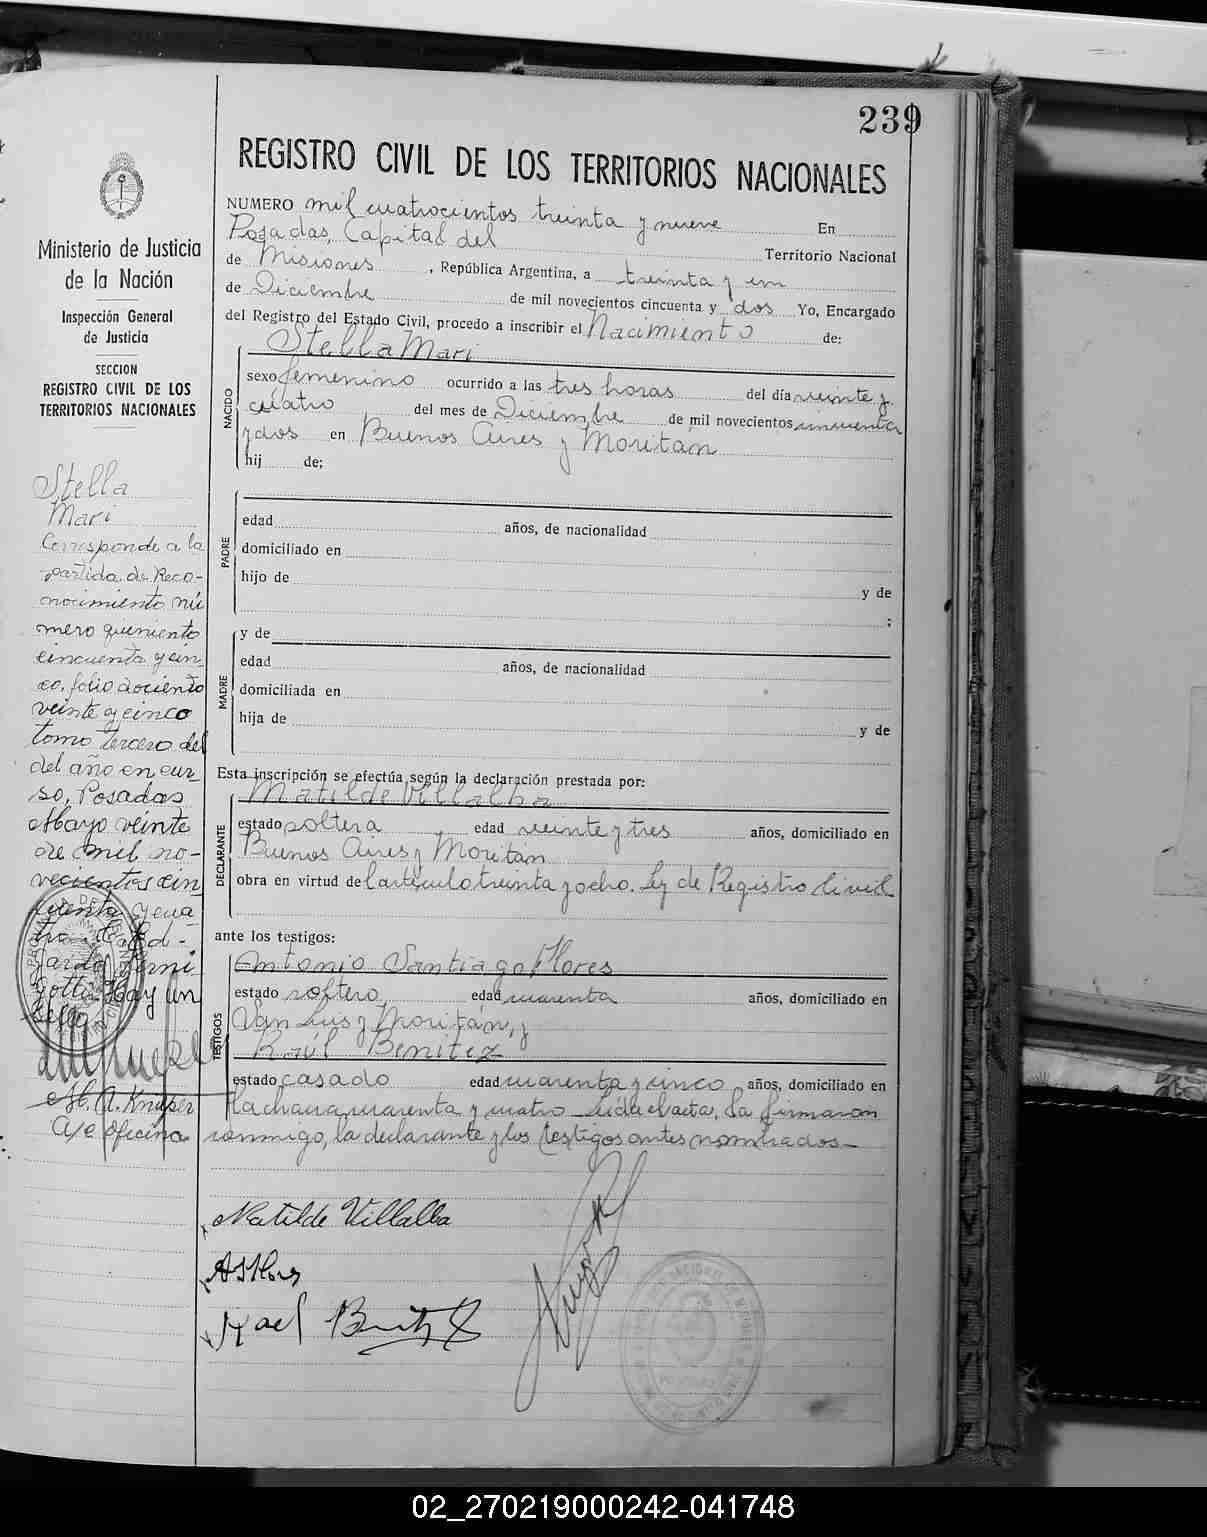 239
REGISTRO CIVIL DE LOS TERRITORIOS NACIONALES
Ministerio de Justicia
de la Nación
Inspección General
de Justicia
SECCION
REGISTRO CIVIL DE LOS
TERRITORIOS NACIONALES
Stella
Mari
Corresponde a la
partida de Reco-
nocimiento nú
mero quiniento
cincuenta y cin
co, folio dociento
veinte y cinco
tomo tercero del
del año en cur
so, Posadas
Mayo veinte
de mil no-
vecientos cin
cuenta y cua
tro
Hay un
sello
A/c oficina
NUMERO mil cuatrocientos treinta y nueve En
Posadas, Capital del Territorio Nacional
de Misiones, República Argentina, a treinta y un
de Diciembre de mil novecientos cincuenta y dos Yo, Encargado
del Registro del Estado Civil, procedo a inscribir el Nacimiento de:
Stella Mari
NACIDO
sexo femenino ocurrido a las tres horas del día veinte y
cuatro del mes de Diciembre de mil novecientos cincuenta
y dos en Buenos Aires y Moritán
hij de;
PADRE
edad años, de nacionalidad
domiciliado en
hijo de y de
;
MADRE
y de
edad años, de nacionalidad
domiciliada en
hija de y de
Esta inscripción se efectúa según la declaración prestada por:
Matilde Villalba
DECLARANTE
estado soltera edad veinte y tres años, domiciliado en
Buenos Aires y Moritán
obra en virtud del artículo treinta y ocho. Ley de Registro Civil
ante los testigos:
Antonio Santiago Flores
TESTIGOS
estado soltero edad cuarenta años, domiciliado en
San Luis y Moritán, y
Raúl Benitez
estado casado edad cuarenta y cinco años, domiciliado en
la chacra cuarenta y cuatro Leída el acta, la firmaron
conmigo, la declarante y los testigos antes nombrados
Matilde Villalba
02_270219000242-041748